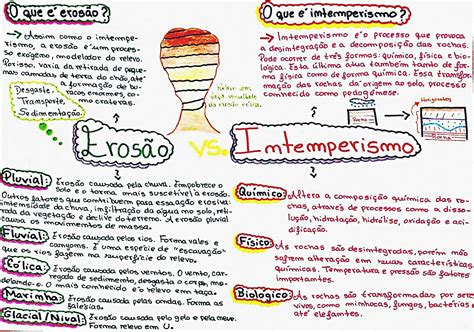 O que é erosão?
→ Assim como o imtempe-
rismo, a erosão é um proces-
so exógeno, modelador do relevo.
Porisso, varia da retirada de peque-
mas camadas de terra do chão, até
a formação de bu-
racos enormes, co-
mo crateras.
Desgaste,
Transporte,
Sedimentação.
Erosão
vs.
O que é imtemperismo?
→ Imtemperismo é o processo que provoca
a desintegração e a decomposição das rochas.
Pode ocorrer de três formas: química, física e bio-
lógica. Esta última alua também tamto de for-
ma física como de forma química. Essa transfor-
mação das rochas dá origem ao solo, processo
conhecido como pedogênese.
Rocha
Imtemperismo
Pluvial: Erosão causada pela chuva. Empobrece o
solo e o torma mais suscetível a erosão.
Outros fatores que contribuem para essa ação erosiva:
intemsidade da chuva, infiltração da água mo solo, reti-
rada da vegetação e declive do terreno. A erosão pluvial
causa os movimentos de massa.
Fluvial: Erosão causada pelos rios. Forma vales e
camyoms. É uma espécie de "escavação"
que os rios fazem ma superfície do relevo.
Eólica: Erosão causada pelos ventos. O vemto, car-
regado de sedimento, desgasta o corpo, mo-
delando-o. O mais comhecido é em forma de taça.
Marinha: Erosão causada pelas ondas. Forma as
falésias.
Glacial/Nival: Erosão causada pelo gelo e pela neve.
Forma o relevo em U.
Químico: Altera a composição química das ro-
chas, através de processos como a disso-
lução, hidratação, hidrólise, oxidação e aci-
dificação.
Físico: As rochas são desimtegradas, porém mão
sofrem alteração em suas características
químicas. Temperatura e pressão são fatores
importantes.
Biológico: As rochas são transformadas por sere
vivos, como bactérias, fungos, até mimhocas,
elefantes, etc.